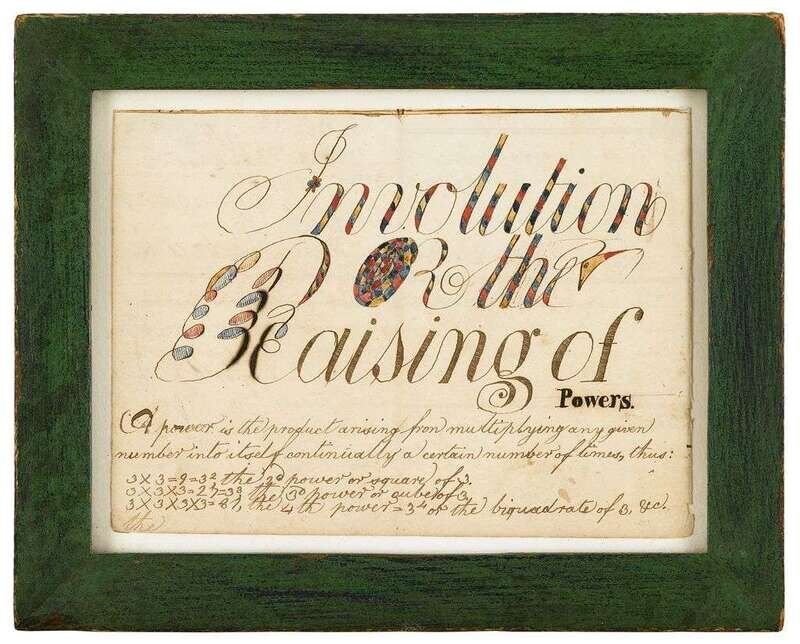 Involution
OR the
Raising of
Powers.
A power is the product arising from multiplying any given
number into itself continually a certain number of times, thus:
3X3=9=3² the 2ᵈ power or square, of 3.
3X3X3=27=3³ the 3ᵈ power or cube of 3,
3X3X3X3=81, the 4th power=3⁴ or the biquadrate of 3, &c.
the